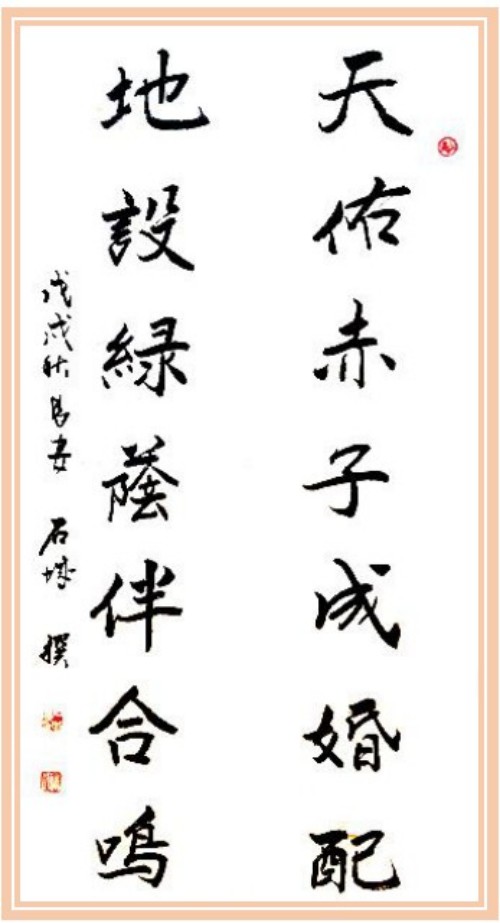 天佑赤子成婚配
地設緑蔭伴合鳴
戊戌秋月安 石城 撰